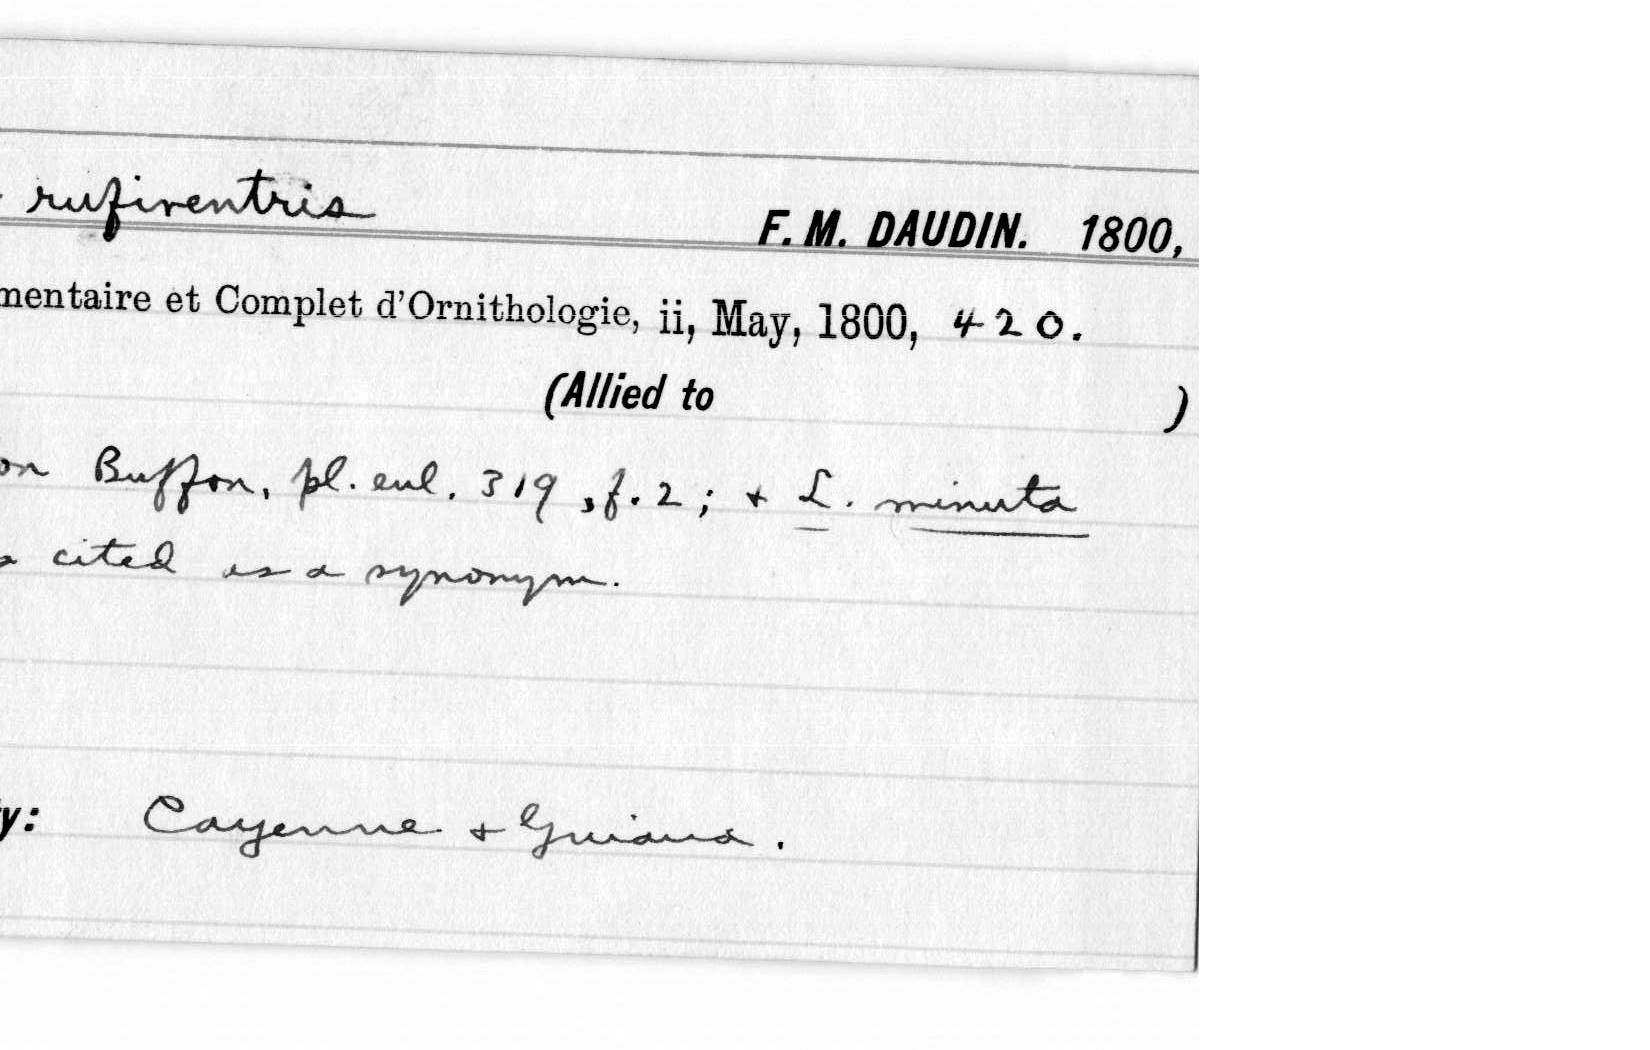 rufiventris F. M. DAUDIN. 1800,
mentaire et Complet d'Ornithologie, ii, May, 1800, 420.
(Allied to )
on Buffon, pl. enl. 319, f. 2; + L. minuta
cited as a synonym.
y: Cayenne + Guiana.